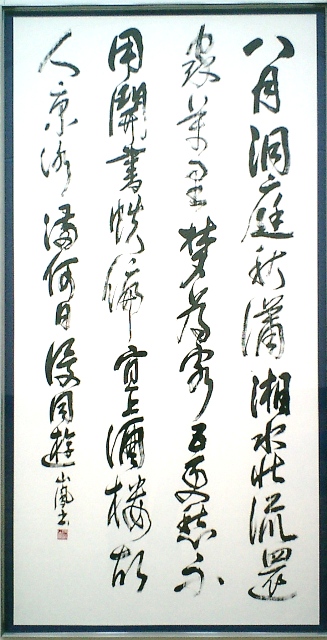 八月洞庭秋瀟湘水北流還
家萬里夢為客五更愁不
用開書帙偏宜上酒楼故
人京洛満何日復同遊 山嵐書